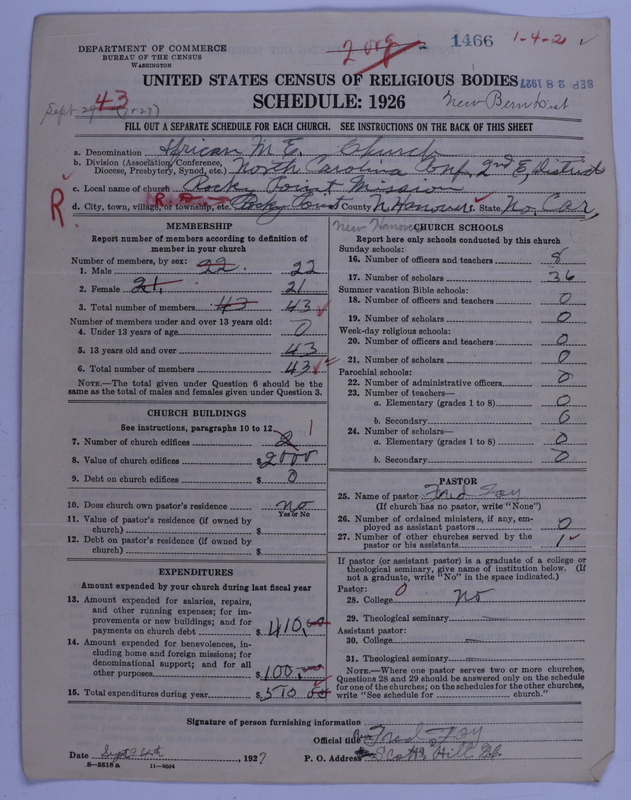 DEPARTMENT OF COMMERCE
BUREAU OF THE CENSUS
WASHINGTON
2 org
1466
1-4-2
UNITED STATES CENSUS OF RELIGIOUS BODIES
SEP 28 1927
SCHEDULE: 1926
43
Sept 29
FILL OUT A SEPARATE SCHEDULE FOR EACH CHURCH. SEE INSTRUCTIONS ON THE BACK OF THIS SHEET
a. Denomination African M. E. Church
b. Division (Association, Conference, Diocese, Presbytery, Synod, etc.) North Carolina Conf, 2nd E, District
c. Local name of church Rocky Point Mission
R
d. City, town, village, or township, etc. Rocky Point County N Hanover State No. Car,
New Hanover
MEMBERSHIP
Report number of members according to definition of
member in your church
Number of members, by sex:
1. Male 22 22
2. Female 21. 21
3. Total number of members 43 43
Number of members under and over 13 years old:
4. Under 13 years of age 0
5. 13 years old and over 43
6. Total number of members 43
NOTE.—The total given under Question 6 should be
same as the total of males and females given under Question 3.
CHURCH BUILDINGS
See instructions, paragraphs 10 to 12
7. Number of church edifices 2 1
8. Value of church edifices $2000
9. Debt on church edifices $ 0
10. Does church own pastor's residence No
Yes or No
11. Value of pastor's residence (if owned by
church) $
12. Debt on pastor's residence (if owned by
church) $
EXPENDITURES
Amount expended by your church during last fiscal year
13. Amount expended for salaries, repairs,
and other running expenses; for im-
provements or new buildings; and for
payments on church debt $ 410,00
14. Amount expended for benevolences, in-
cluding home and foreign missions; for
denominational support; and for all
other purposes $100.00
15. Total expenditures during year $510 00
CHURCH SCHOOLS
Report here only schools conducted by this church
Sunday schools:
16. Number of officers and teachers 8
17. Number of scholars 36
Summer vacation Bible schools:
18. Number of officers and teachers 0
19. Number of scholars 0
Week-day religious schools:
20. Number of officers and teachers 0
21. Number of scholars 0
Parochial schools:
22. Number of administrative officers 0
23. Number of teachers—
a. Elementary (grades 1 to 8) 0
b. Secondary 0
24. Number of scholars—
a. Elementary (grades 1 to 8) 0
b. Secondary 0
PASTOR
25. Name of pastor Fred Foy
(If church has no pastor, write "None")
26. Number of ordained ministers, if any, em-
ployed as assistant pastors 0
27. Number of other churches served by the
pastor or his assistants 1
If pastor (or assistant pastor) is a graduate of a college or
theological seminary, give name of institution below. (If
not a graduate, write "No" in the space indicated.)
Pastor:
28. College 0 No
29. Theological seminary
Assistant pastor:
30. College
31. Theological seminary
NOTE.—Where one pastor serves two or more churches,
Questions 28 and 29 should be answered only on the schedule
for one of the churches; on the schedules for the other churches,
write "See schedule for church."
Signature of person furnishing information
Official title Fred Foy
Date Sept 24th, 1927 P. O. Address Scotts Hill N.C.
8-5518a 11-9024